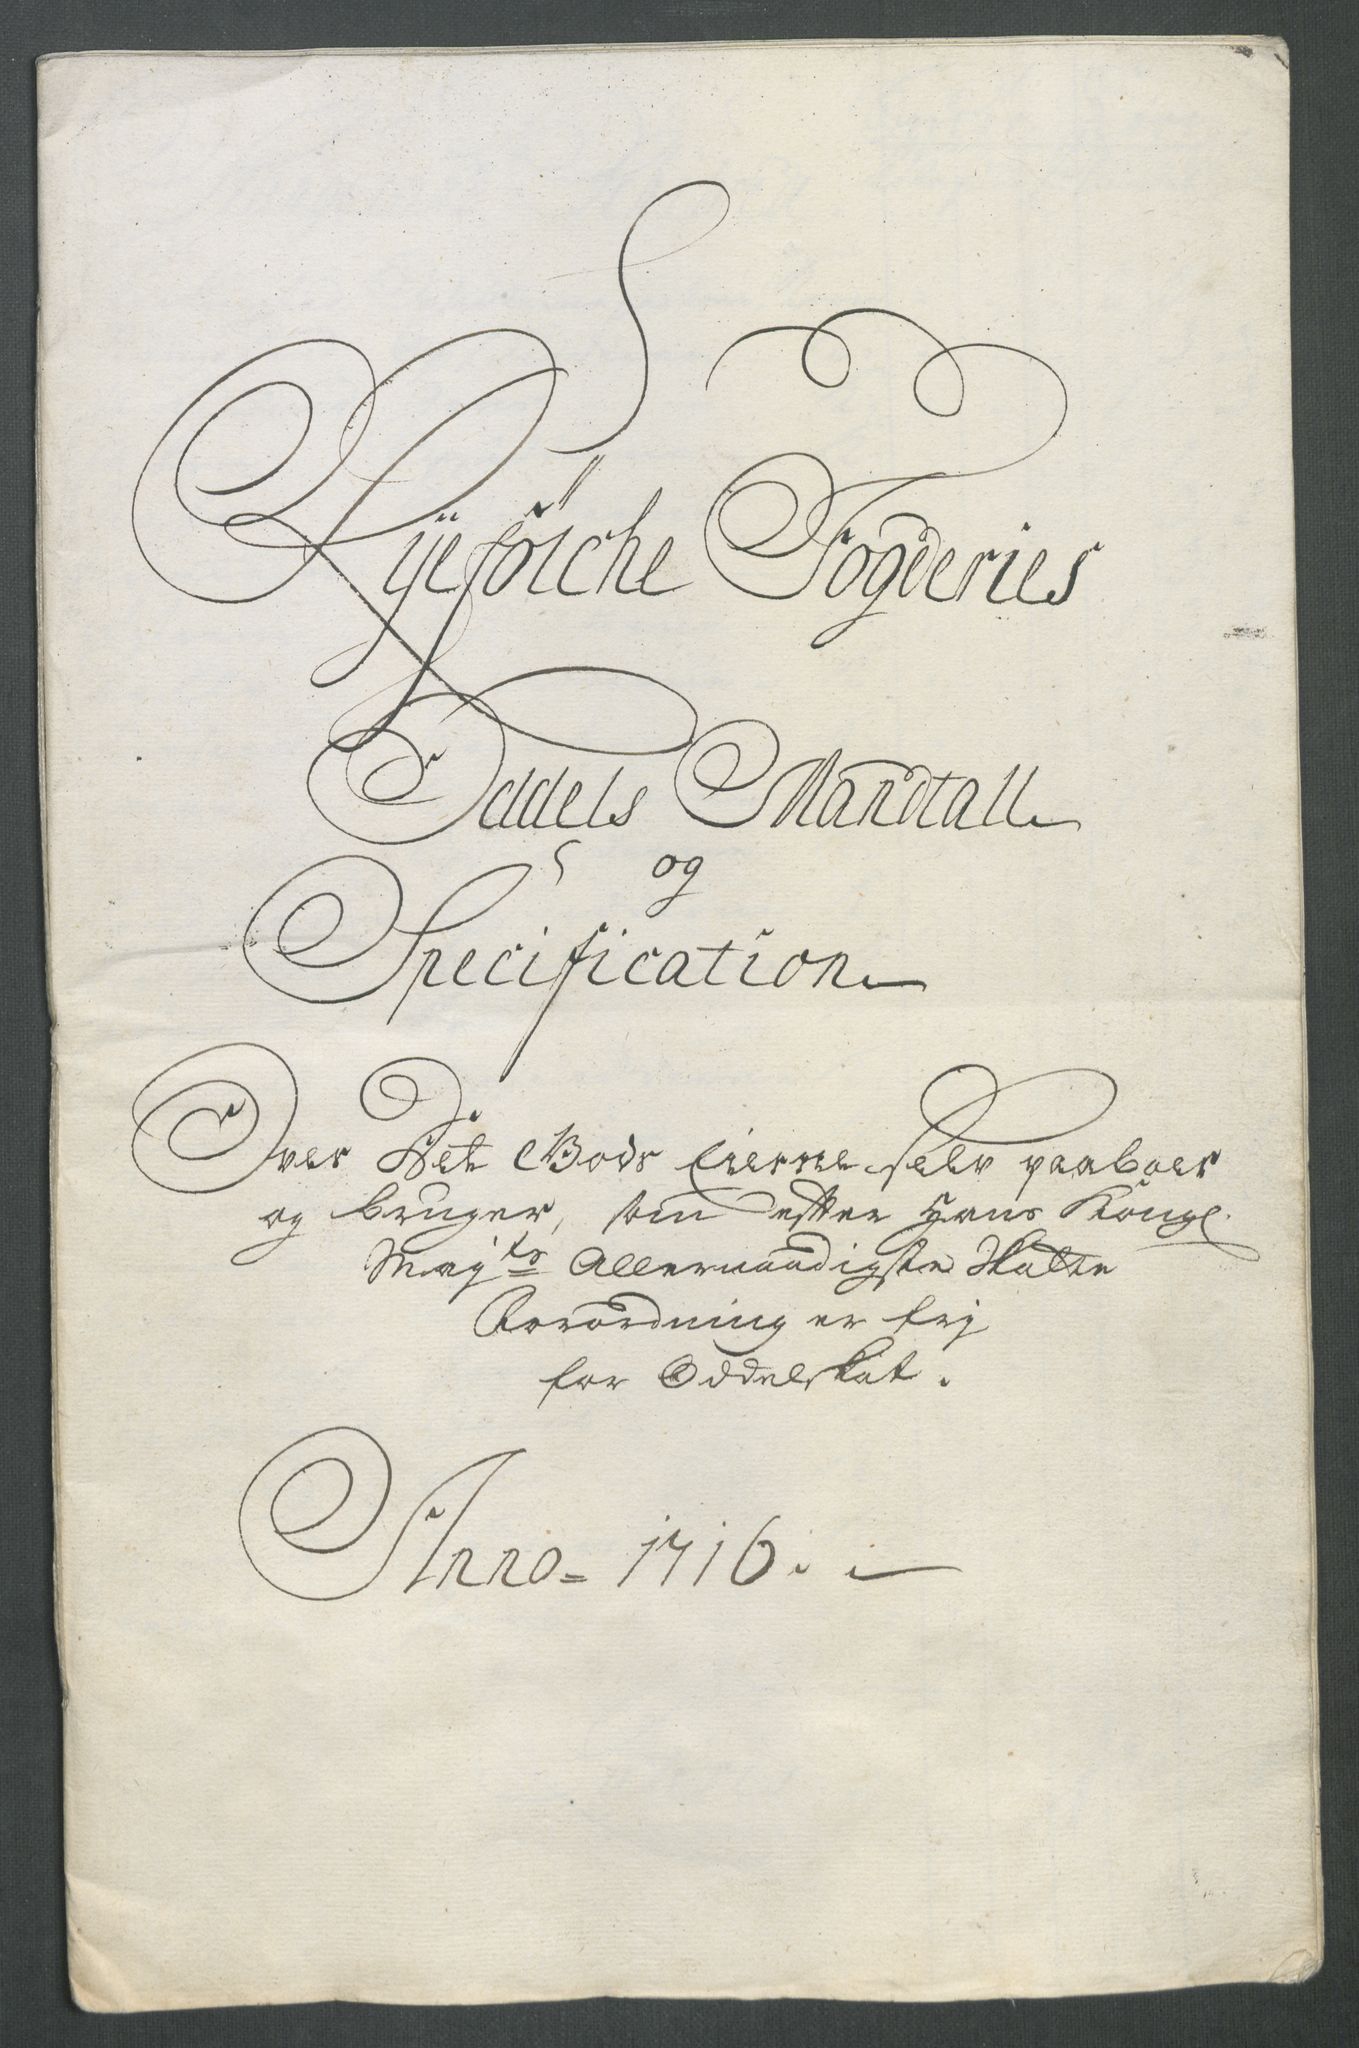 Ryefölche Fogderies
Oddels Mandtall
og
Specification
Over Det Gods Eierne selv paaboer
og bruger, som efter Hans Kongl.
Mayts Allernaadigste Skatte
Forordning er frj
for Oddelskat.
Anno = 1716.